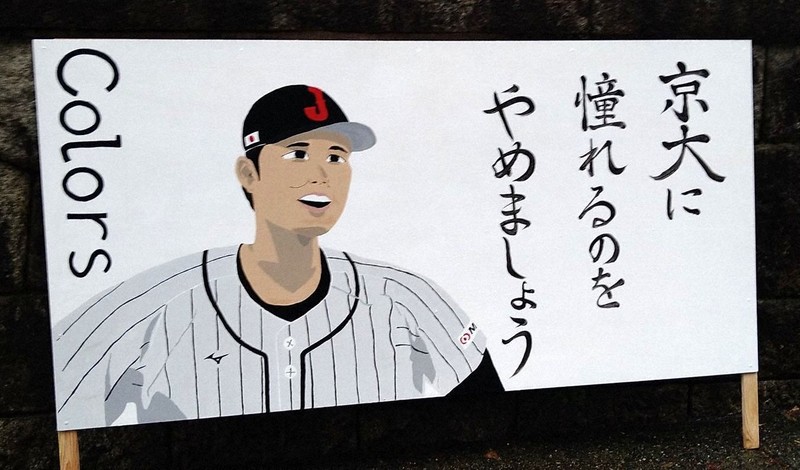 京大に
憧れるのを
やめましょう
Colors
J